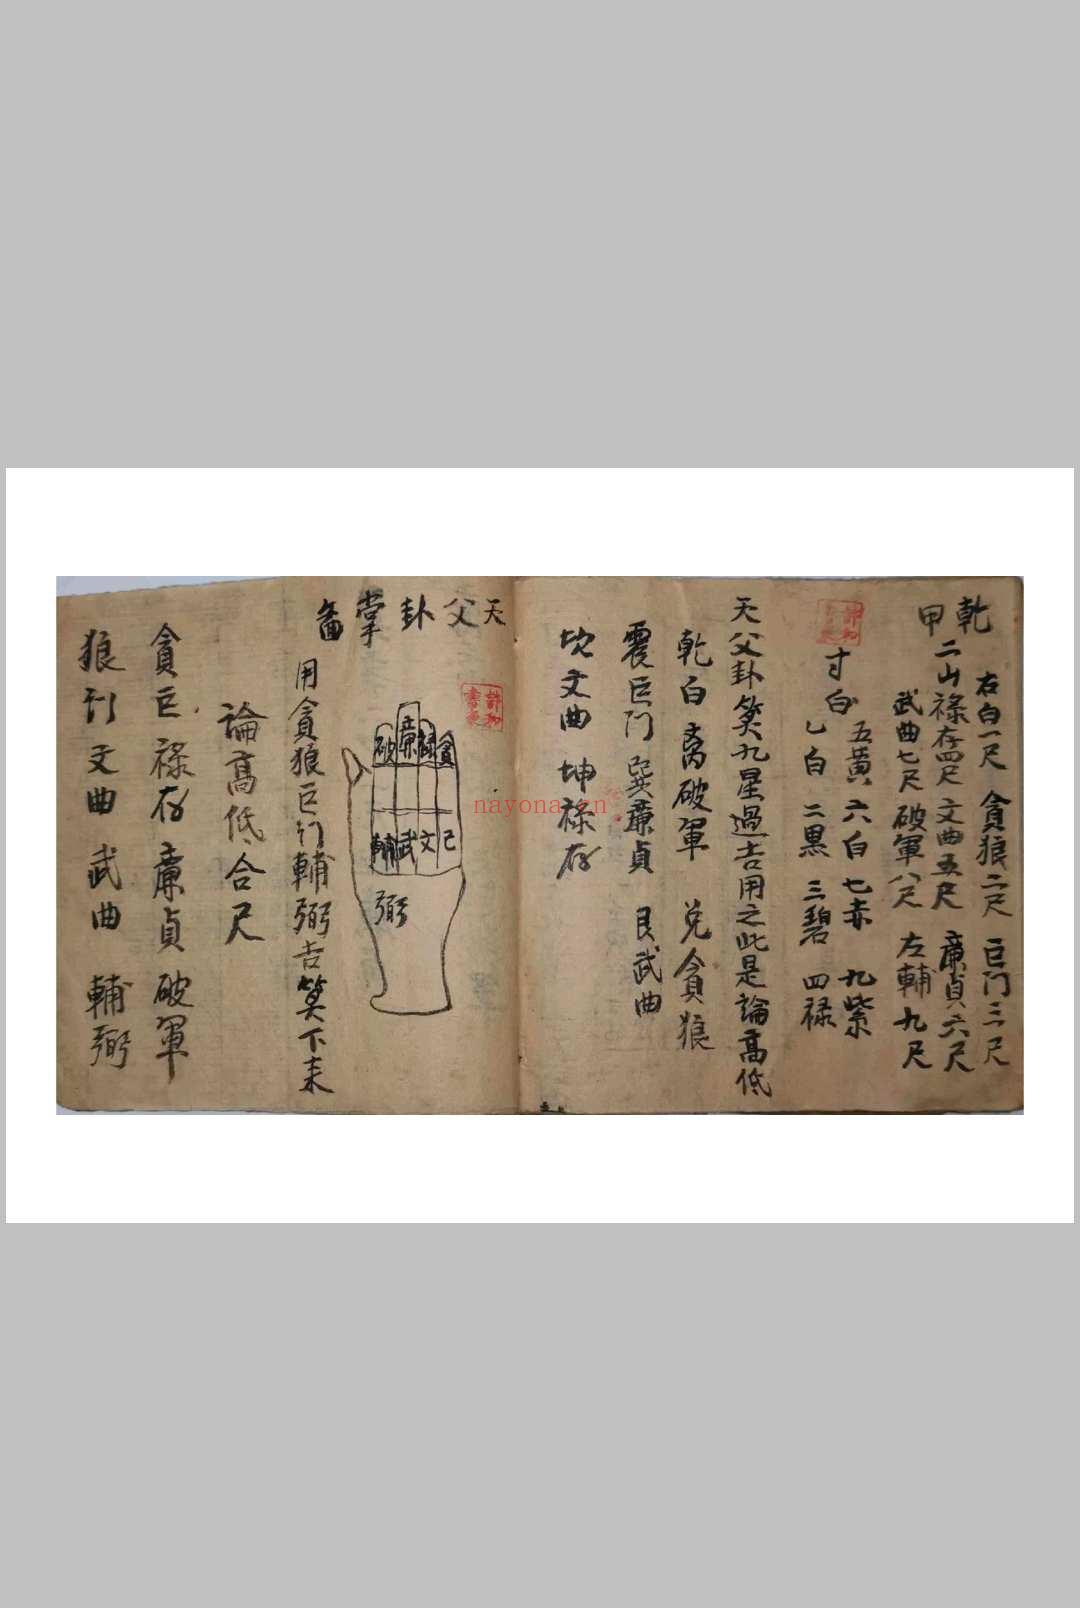 乾
甲
二山
右白一尺 貪狼二尺 巨门三尺
祿存四尺 文曲五尺 廉貞六尺
武曲七尺 破軍八尺 左輔九尺
寸白
五黃 六白 七赤 九紫
乙白 二黑 三碧 四禄
天父卦筭九星過吉用之此是論髙低
乾白 离破軍 兑貪狼
震巨门 巽廉貞 艮武曲
坎文曲 坤禄存
天父卦掌畣
貪
祿
廉
破
己
文
武
輔
弼
用貪狼巨门輔弼吉筭下来
論髙低合尺
貪巨禄存廉貞破軍
狼门文曲武曲 輔弼
nayona.cn